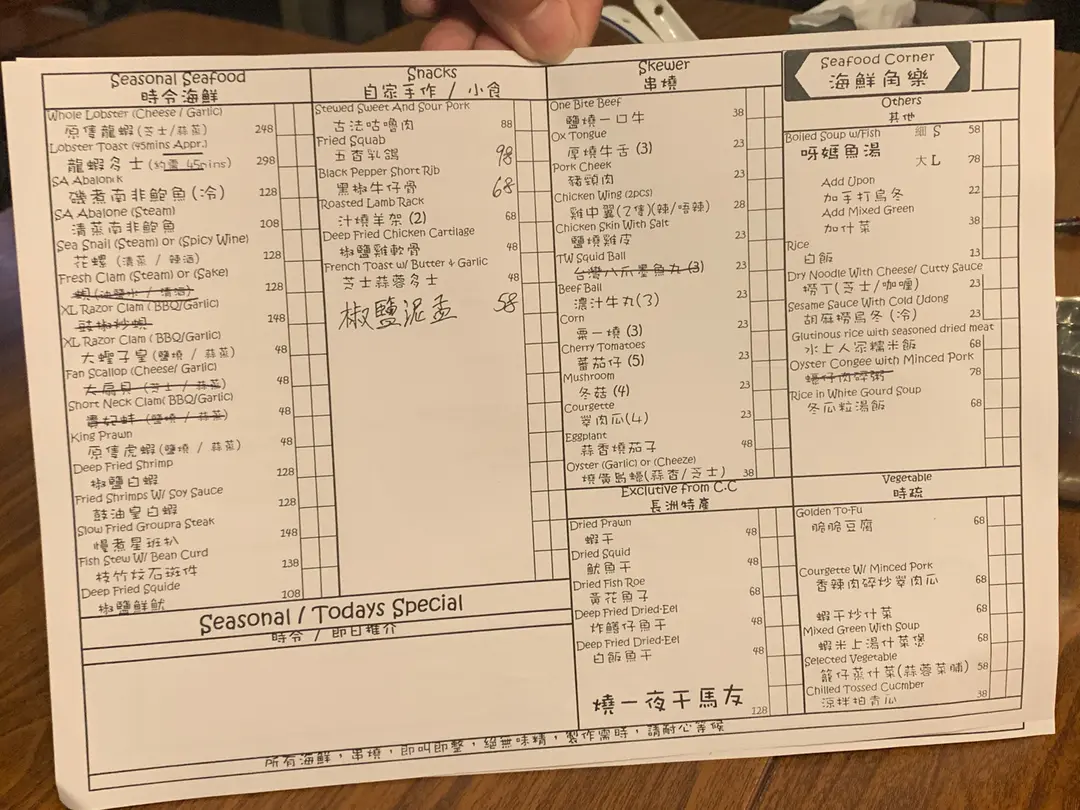 Seasonal Seafood
時令海鮮
Whole Lobster (Cheese / Garlic)
原隻龍蝦(芝士/蒜菜) 248
Lobster Toast (45mins Appr.)
龍蝦多士(約需 45mins) 298
SA Abalonik
磯煮南非鮑魚(冷) 128
SA Abalone (Steam)
清蒸南非鮑魚 108
Sea Snail (Steam) or (Spicy Wine)
花螺 (清蒸 / 辣酒) 128
Fresh Clam (Steam) or (Sake)
蜆(油鹽水 / 清酒) 128
XL Razor Clam (BBQ/Garlic)
豉椒炒蜆 148
XL Razor Clam ( BBQ/Garlic)
大蟶子皇(鹽燒 / 蒜菜) 48
Fan Scallop (Cheese/ Garlic)
大扇貝 (芝士 / 蒜菜) 48
Short Neck Clam( BBQ/Garlic)
貴妃蚌 (鹽燒 / 蒜菜) 48
King Prawn
原隻虎蝦(鹽燒 / 蒜菜) 48
Deep Fried Shrimp
椒鹽白蝦 128
Fried Shrimps W/ Soy Sauce
鼓油皇白蝦 128
Slow Fried Groupra Steak
慢煮星斑扒 148
Fish Stew W/ Bean Curd
枝竹炆石斑件 138
Deep Fried Squide
椒鹽鮮魷 108
Snacks
自家手作 / 小食
Stewed Sweet And Sour Pork
古法咕嚕肉 88
Fried Squab
五杏乳鴿 98
Black Pepper Short Rib
黑椒牛仔骨 68
Roasted Lamb Rack
汁燒羊架 (2) 68
Deep Fried Chicken Cartilage
椒鹽雞軟骨 48
French Toast w/ Butter & Garlic
芝士蒜蓉多士 48
椒鹽泥孟 58
Skewer
串燒
One Bite Beef
鹽燒一口牛 38
Ox Tongue
原燒牛舌 (3) 23
Pork Cheek
豬頸肉 23
Chicken Wing (2PCS)
雞中翼(2隻)(辣/唔辣) 28
Chicken Skin With Salt
鹽燒雞皮 23
TW Squid Ball
台灣八爪墨魚丸 (3) 23
Beef Ball
濃汁牛丸(3) 23
Corn
粟一燒 (3) 23
Cherry Tomatoes
蕃茄仔 (5) 23
Mushroom
冬菇 (4) 23
Courgette
翠肉瓜(4) 23
Eggplant
蒜香燒茄子 48
Oyster (Garlic) or (Cheeze)
燒廣島蠔(蒜杏/芝士) 38
Exclutive from C.C
長洲特產
Dried Prawn
蝦干 48
Dried Squid
魷魚干 48
Dried Fish Roe
黃花魚子 68
Deep Fried Dried-Eel
炸鱔仔魚干 48
Deep Fried Dried-Eel
白飯魚干 48
燒一夜干馬友 128
Seafood Corner
海鮮角樂
Others
其他
Boiled Soup w/Fish 細 S 58
呀媽魚湯 大 L 78
Add Upon
加手打烏冬 22
Add Mixed Green
加什菜 38
Rice
白飯 13
Dry Noodle With Cheese/ Cutty Sauce
撈丁(芝士/咖喱) 23
Sesame Sauce With Cold Udong
胡麻撈烏冬 (冷) 23
Glutinous rice with seasoned dried meat
水上人家糯米飯 68
Oyster Congee with Minced Pork
蠔仔肉碎粥 78
Rice in White Gourd Soup
冬瓜粒湯飯 68
Vegetable
時疏
Golden To-Fu
脆脆豆腐 68
Courgette W/ Minced Pork
香辣肉碎炒翠肉瓜 68
蝦干炒什菜 68
Mixed Green With Soup
蝦米上湯什菜煲 68
Selected Vegetable
籠仔蒸什菜(蒜蓉菜脯) 58
Chilled Tossed Cucmber
涼拌拍青瓜 38
Seasonal / Todays Special
時令 / 即日推介
所有海鮮，串燒，即叫即整，絕無味精，製作需時，請耐心等候